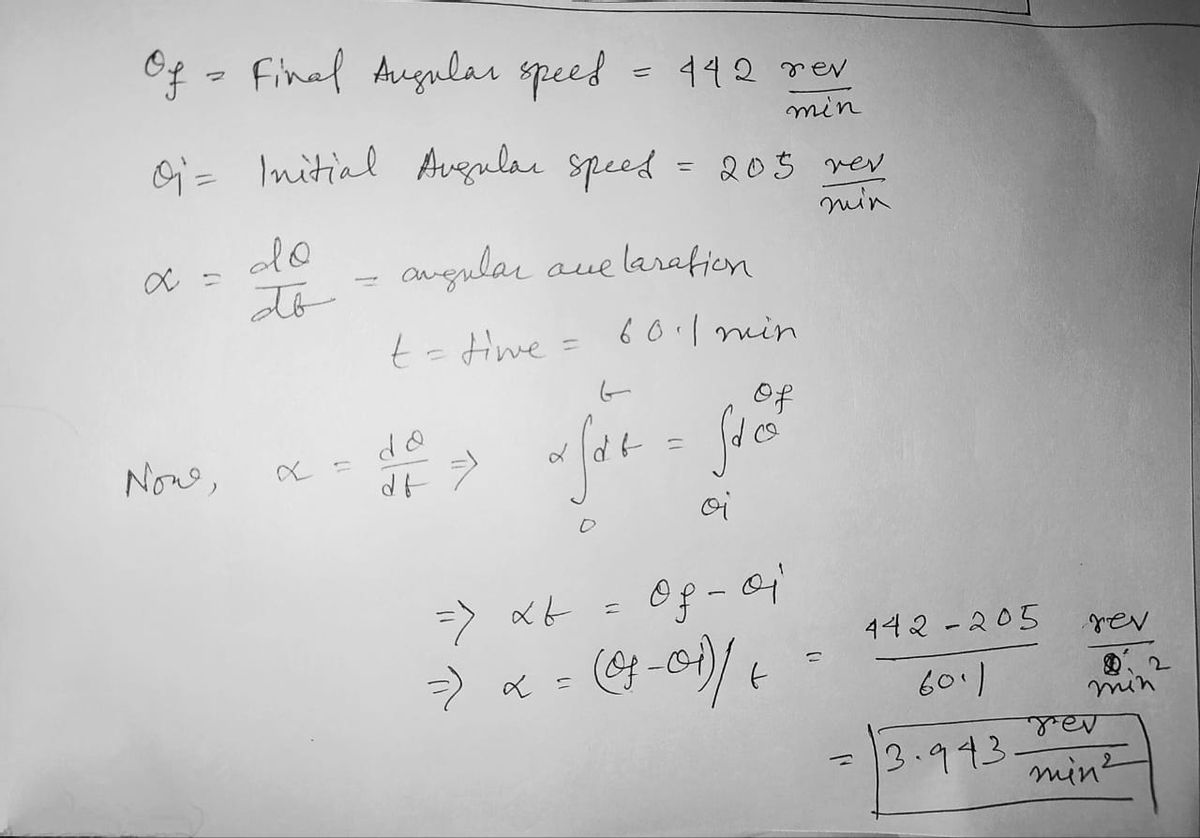 θf = Final Angular speed = 442 rev/min
θi = Initial Angular speed = 205 rev/min
α = dθ/dt = angular accelaration
t = time = 60.1 min
Now, α = dθ/dt ⇒ α ∫₀ᵗ dt = ∫_θi^θf dθ
⇒ αt = θf - θi
⇒ α = (θf - θi)/t = 442 - 205/60.1 rev/min²
= 3.943 rev/min²